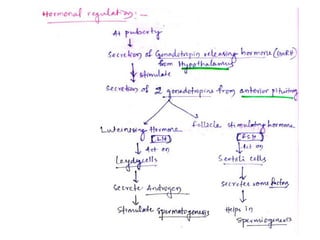 Hormonal regulation:-
At puberty
Secretion of Gonadotropin releasing hormone (GnRH)
from Hypothalamus
stimulate
Secretion of 2 gonadotropins from anterior pituitary
Luteinising Hormone
[LH]
Act on
Leydig cells
Secrete Androgen
Stimulate Spermatogenesis
Follicle stimulating hormone
[FSH]
Act on
Sertoli cells
Secretes some factors
Helps in
Spermiogenesis